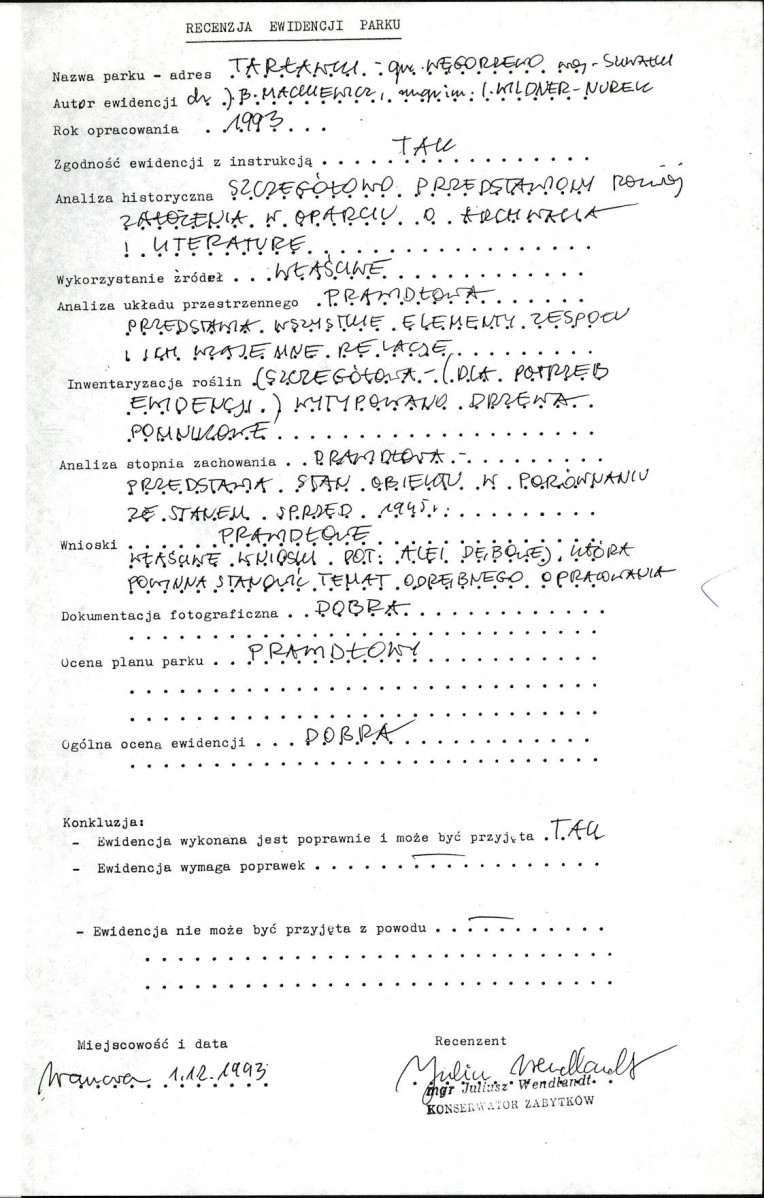 RECENZJA EWIDENCJI PARKU
Nazwa parku - adres TARŁAWKI - gm. WĘGORZEWO woj - SUWAŁKI
Autor ewidencji dr J.B. MACKIEWICZ, mgr inż. I. WILDNER-NUREK
Rok opracowania 1993
Zgodność ewidencji z instrukcją TAK
Analiza historyczna SZCZEGÓŁOWO PRZEDSTAWIONY rozwój
ZAŁOŻENIA W OPARCIU O ARCHIWALIA
I LITERATURĘ
Wykorzystanie źródeł WŁAŚCIWE
Analiza układu przestrzennego PRAWIDŁOWA
PRZEDSTAWIA WSZYSTKIE ELEMENTY ZESPOŁU
I ICH WZAJEMNE RELACJE
Inwentaryzacja roślin (SZCZEGÓŁOWA - (DLA POTRZEB
EWIDENCJI) WYTYPOWANO DRZEWA
POMNIKOWE
Analiza stopnia zachowania PRAWIDŁOWA -
PRZEDSTAWIA STAN OBIEKTU W PORÓWNANIU
ZE STANEM SPRZED 1945 r.
Wnioski PRAWIDŁOWE
WŁAŚCIWE WNIOSKI DOT: ALEI DĘBOWEJ, KTÓRA
POWINNA STANOWIĆ TEMAT ODRĘBNEGO OPRACOWANIA
Dokumentacja fotograficzna DOBRA
Ocena planu parku PRAWIDŁOWY
Ogólna ocena ewidencji DOBRA
Konkluzja:
- Ewidencja wykonana jest poprawnie i może być przyjęta TAK
- Ewidencja wymaga poprawek —
- Ewidencja nie może być przyjęta z powodu —
Miejscowość i data
Recenzent
Warszawa 1.12.1993
Juliusz Wendlandt
mgr Juliusz Wendlandt
KONSERWATOR ZABYTKÓW